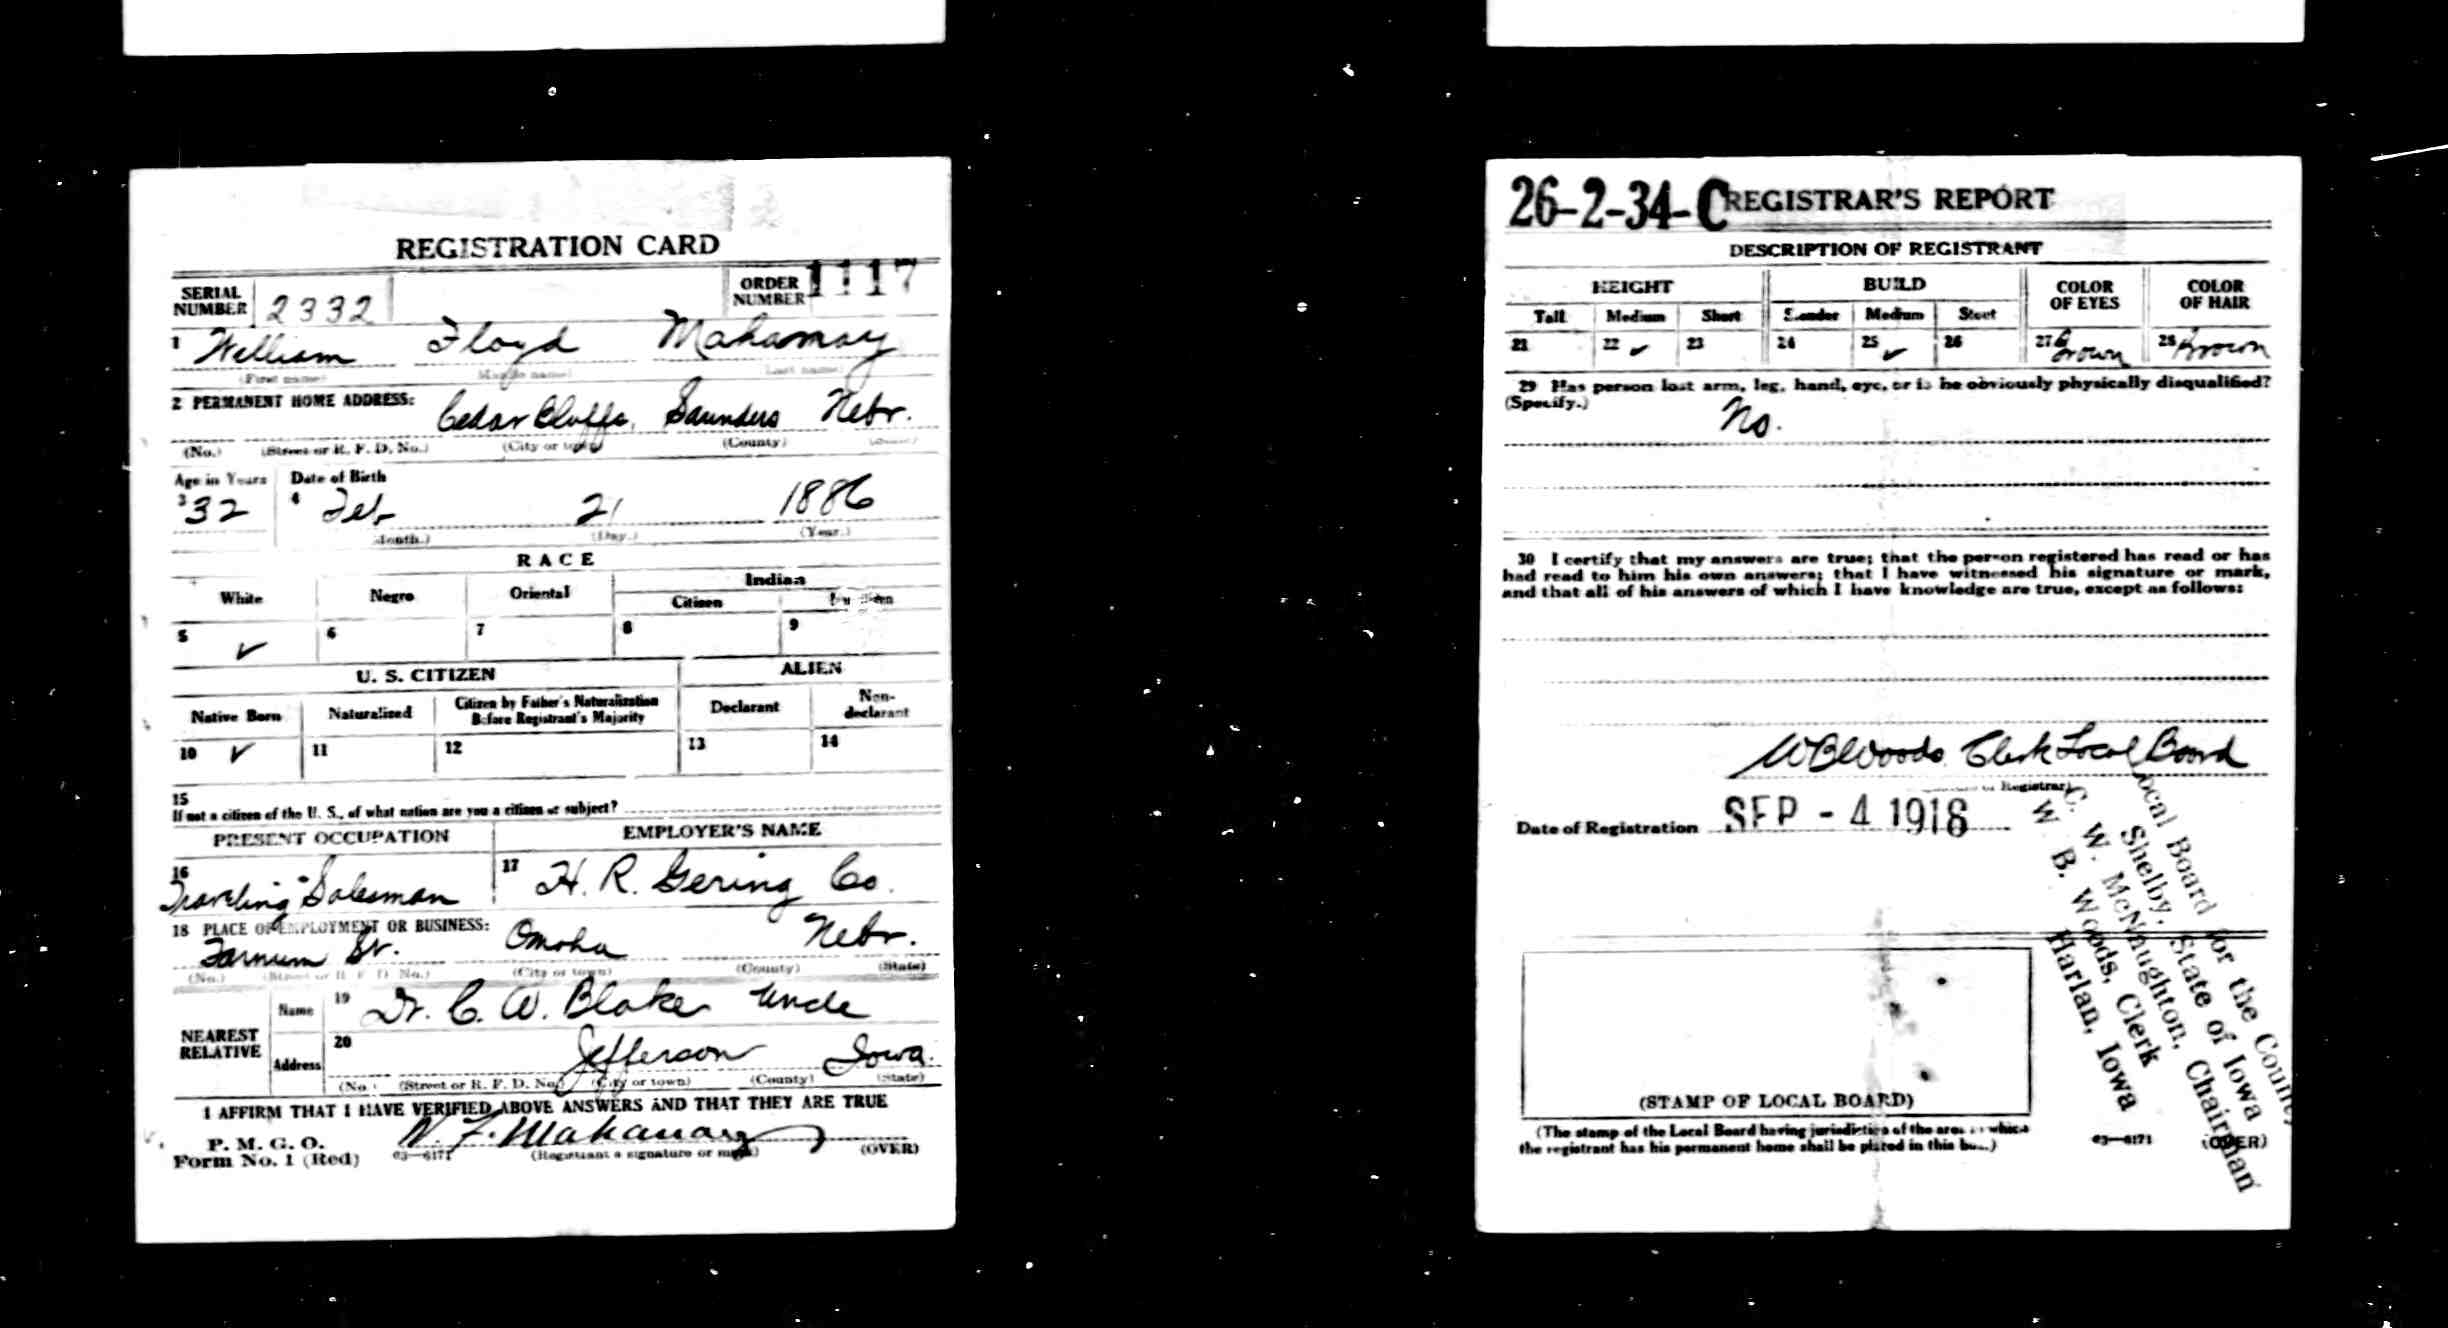 REGISTRATION CARD
SERIAL NUMBER 2332
ORDER NUMBER 1117
1 William Floyd Mahanay
(First name) (Middle name) (Last name)
2 PERMANENT HOME ADDRESS:
Cedar Bluffs, Saunders Nebr.
(No.) (Street or R. F. D. No.) (City or town) (County) (State)
Age in Years Date of Birth
3 32 4 Feb 21 1886
(Month.) (Day.) (Year.)
RACE
White Negro Oriental Indian
Citizen
5 ✓ 6 7 8 9
U. S. CITIZEN ALIEN
Native Born Naturalized Citizen by Father's Naturalization Before Registrant's Majority Declarant Non-declarant
10 ✓ 11 12 13 14
15
If not a citizen of the U. S., of what nation are you a citizen or subject?
PRESENT OCCUPATION EMPLOYER'S NAME
16 Traveling Salesman 17 H. R. Gering Co.
18 PLACE OF EMPLOYMENT OR BUSINESS:
Farnum St. Omaha Nebr.
(No.) (Street or R. F. D. No.) (City or town) (County) (State)
NEAREST RELATIVE
Name 19 Dr. C. W. Blake Uncle
Address 20 Jefferson Iowa.
(No.) (Street or R. F. D. No.) (City or town) (County) (State)
I AFFIRM THAT I HAVE VERIFIED ABOVE ANSWERS AND THAT THEY ARE TRUE
P. M. G. O.
Form No. 1 (Red) 03—6171 W. F. Mahanay (OVER)
(Registrant's signature or mark)
26-2-34-C REGISTRAR'S REPORT
DESCRIPTION OF REGISTRANT
HEIGHT BUILD COLOR OF EYES COLOR OF HAIR
Tall Medium Short Slender Medium Stout
21 22 ✓ 23 24 25 ✓ 26 27 Brown 28 Brown
29 Has person lost arm, leg, hand, eye, or is he obviously physically disqualified?
(Specify.) No.
30 I certify that my answers are true; that the person registered has read or has
had read to him his own answers; that I have witnessed his signature or mark,
and that all of his answers of which I have knowledge are true, except as follows:
W B Woods Clerk Local Board
Registrar
Date of Registration SEP - 4 1918
Local Board for the County
Shelby, State of Iowa
C. W. McNaughton, Chairman
W. B. Woods, Clerk
Harlan, Iowa
(STAMP OF LOCAL BOARD)
(The stamp of the Local Board having jurisdiction of the area in which
the registrant has his permanent home shall be placed in this box.)
03—6171 (OVER)